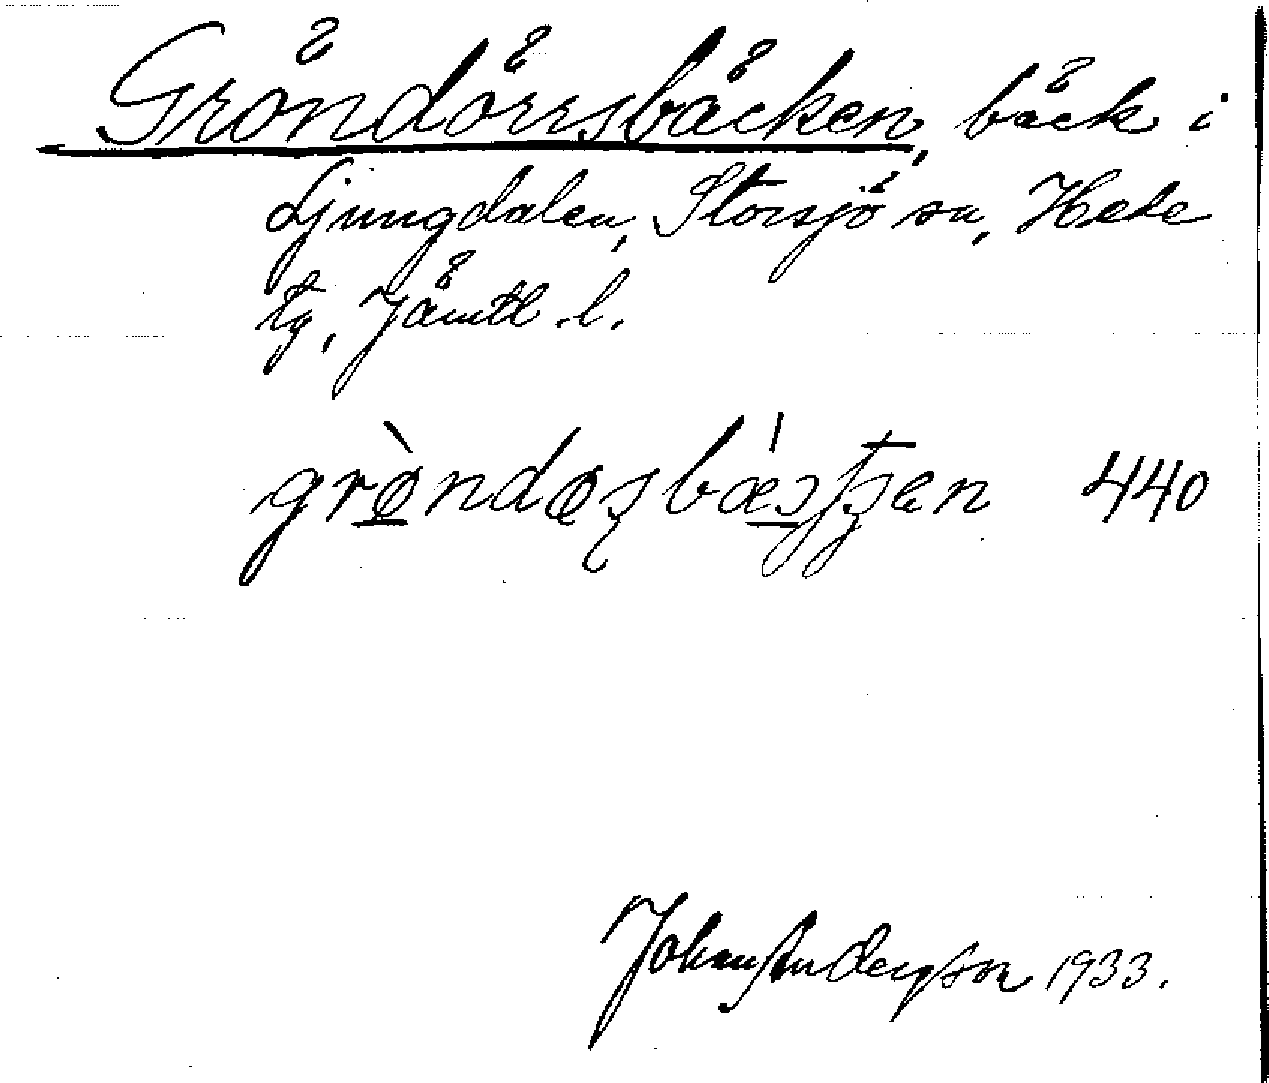 Gröndörrsbäcken, bäck i
Ljungdalen, Storsjö sn, Hede
tg, Jämtl. l.
grø̀ndøʂbæ̀ɔʃʒen 440
Johan Anderson 1933.